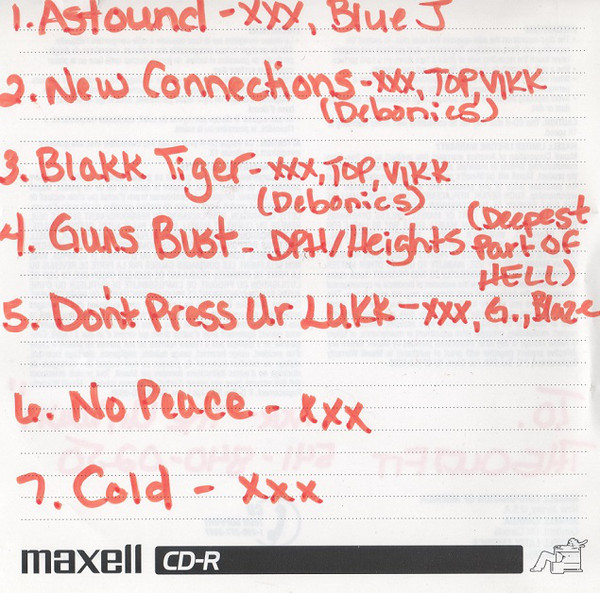 1. Astound - xxx, Blue J
2. New Connections - xxx, TOP, VIKK
(Debonics)
3. Blakk Tiger - xxx, TOP, VIKK
(Debonics)
4. Guns Bust - DPH/Heights (Deepest
Part OF
HELL)
5. Don't Press Ur Lukk - xxx, G., Blaze
6. No Peace - xxx
7. Cold - xxx
maxell CD-R